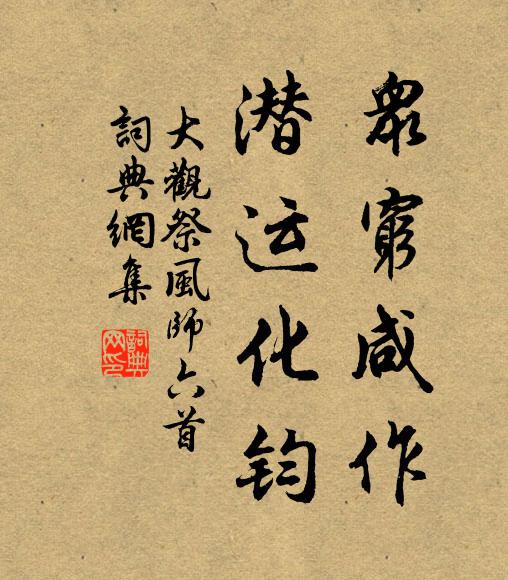 眾窮咸作
潜运化钧
大觀祭風師六首
詞典網集
詞典
网印